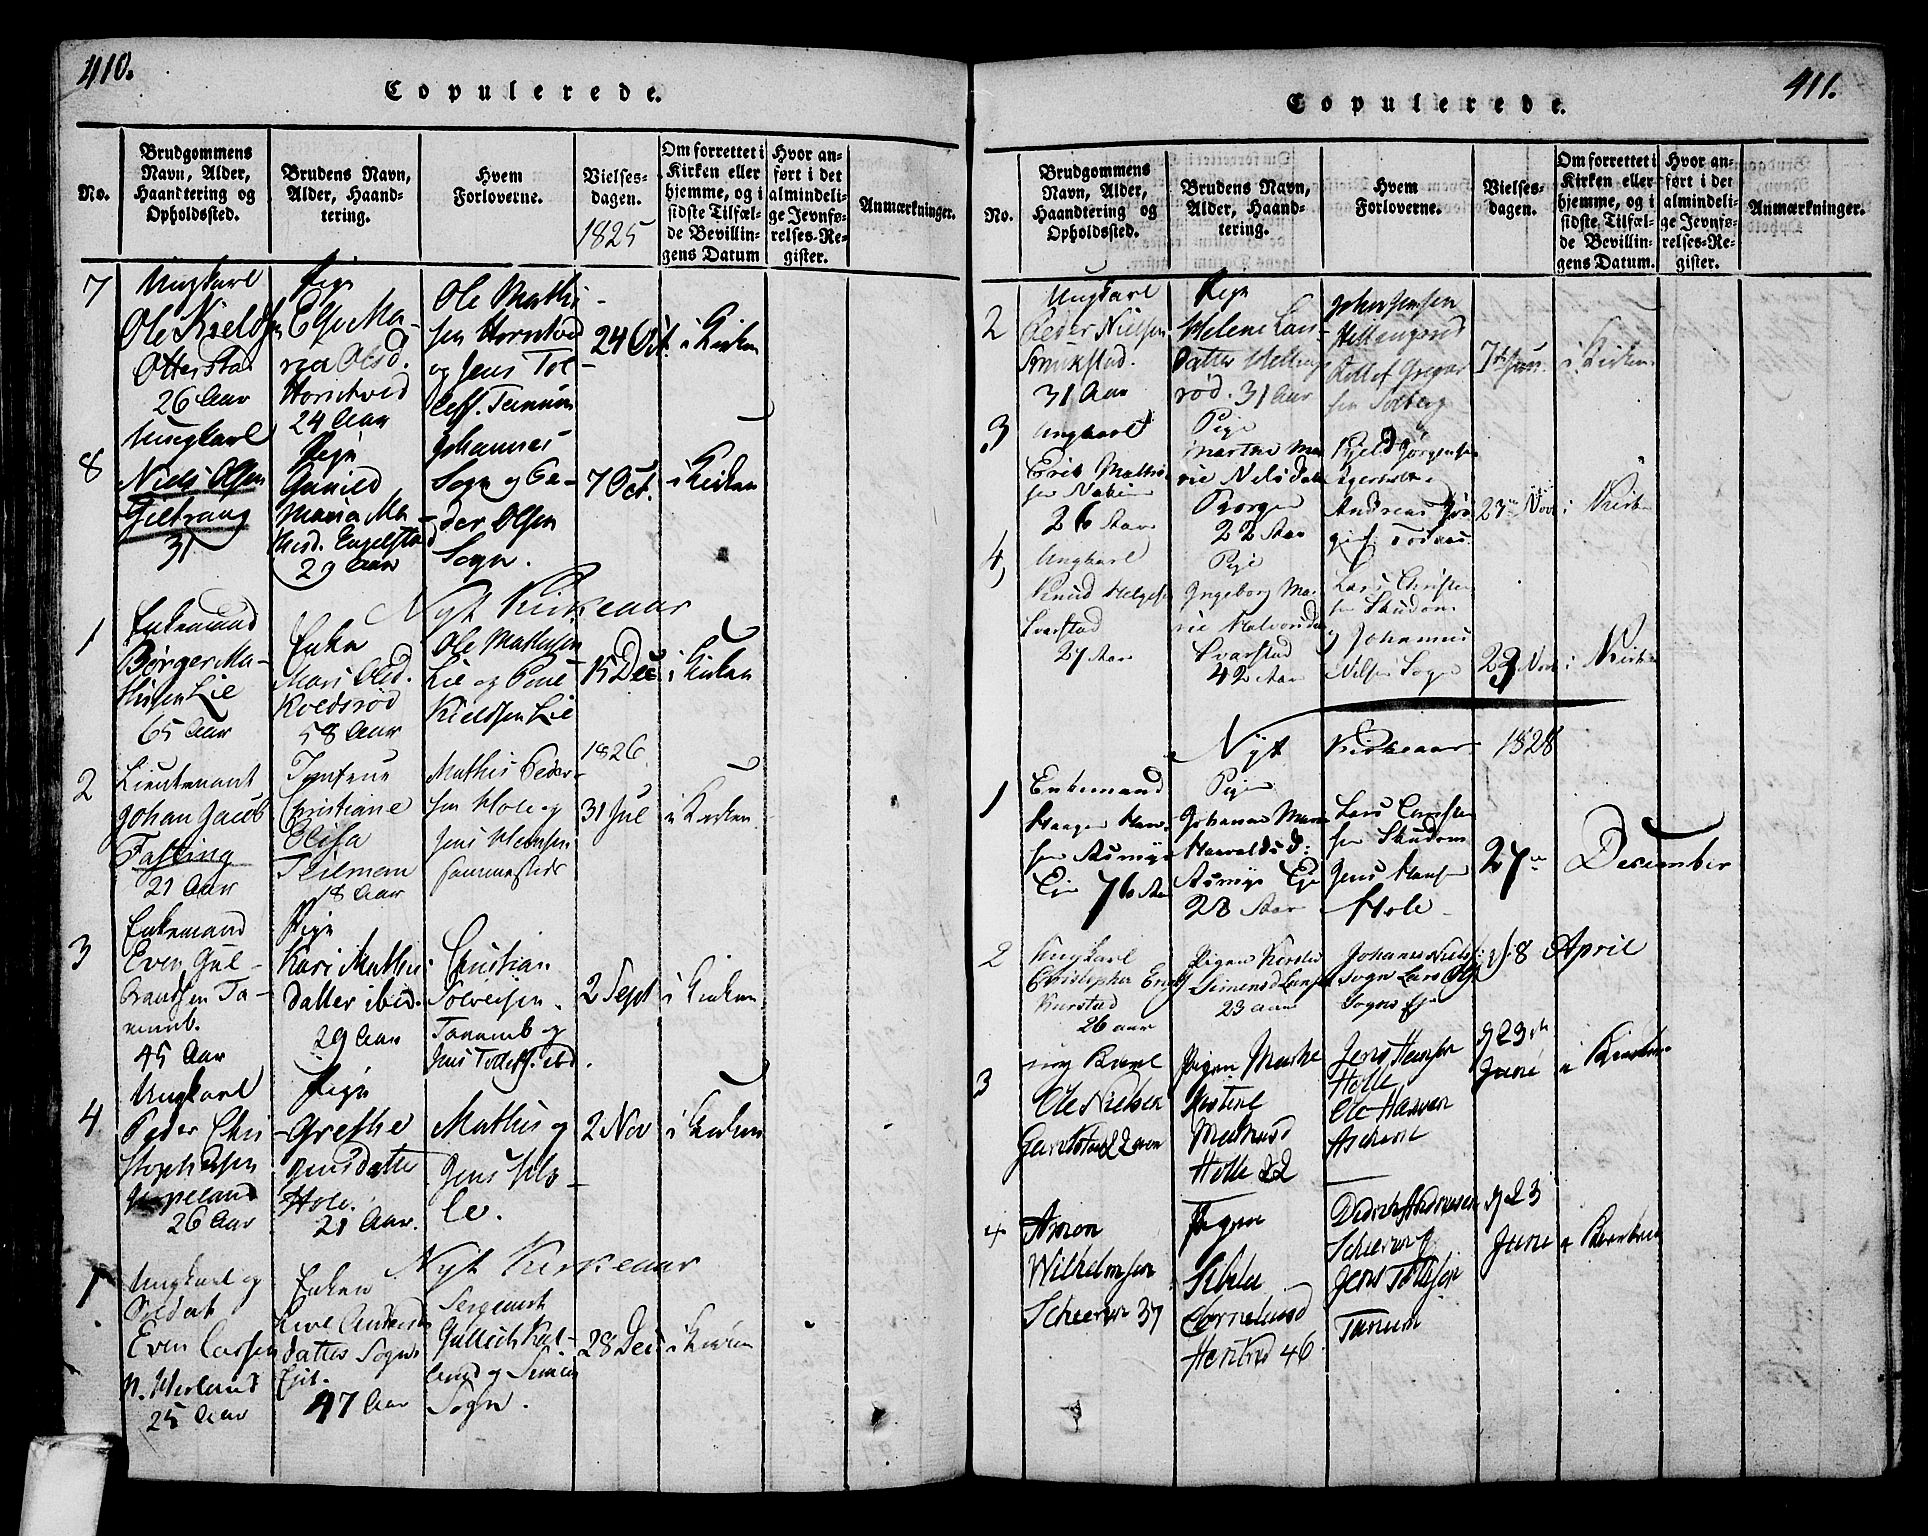 410.
Copulerede.
No.
Brudgommens
Navn, Alder,
Haandtering og
Opholdssted.
Brudens Navn,
Alder, Haand-
tering.
Hvem
Forloverne.
Vielses-
dagen.
1825
Om forrettet i
Kirken eller
hjemme, og i
sidste Tilfæl-
de Bevillin-
gens Datum
Hvor an-
ført i det
almindeli-
ge Jevnfø-
relses-Re-
gister.
Anmærkninger.
7
Ungkarl
Ole Kieldsen
Otterstad
26 Aar
Pige
Else Ma-
ria Olsd.
Horntved
24 Aar
Ole Mathi-
sen Horntved
og Jens Tol-
lefs. Tanum
24 Oct.
i Kirken
8
Ungkarl
Niels Olsen
31
Pige
Gunild
Maria Ma-
thisd. Engelstad
29 Aar
Johannes
Sogn og Pe-
der Olsen
Sogn.
7 Oct.
i Kirken
Nyt Kirkeaar
1
Enkemand
Børger Ma-
thisen Lie
65 Aar
Enke
Mari Olsd.
Kvelsrød
58 Aar
Ole Mathisen
Lie og Poul
Kieldsen Lie
15 Dec
i Kirken
1826
2
Lieutenant
Johan Jacob
Fasting
21 Aar
Jomfrue
Christiane
Elisa
Tilman
18 Aar
Mathis Peder-
sen Hole og
Jens Hansen
sammesteds
31 Jul
i Kirken
3
Enkemand
Even Gul-
brandsen Ta-
numb.
45 Aar
Pige
Kari Mathis-
datter ibid.
29 Aar
Christian
Tanumb og
Jens Tollefs. ibd.
2 Sept
i Kirken
4
Ungkarl
Peder Chri-
stophersen
26 Aar
Pige
Grethe
Jensdatter
Hole.
21 Aar.
Mathis og
Jens Ho-
le.
2 Nov
i Kirken
Nyt Kirkeaar
1
Ungkarl og
Soldat
Even Larsen
N. Herland
25 Aar
Enken
Live Anders-
datter Sogns
Eje.
47 Aar
Sergeant
Gullich Kal-
lerud og Simen
Sogn.
28 Dec
i Kirken
411.
Copulerede.
No.
Brudgommens
Navn, Alder,
Haandtering og
Opholdssted.
Brudens Navn,
Alder, Haand-
tering.
Hvem
Forloverne.
Vielses-
dagen.
Om forrettet i
Kirken eller
hjemme, og i
sidste Tilfæl-
de Bevillin-
gens Datum.
Hvor an-
ført i det
almindeli-
ge Jevnfø-
relses-Re-
gister.
Anmærkninger.
2
Ungkarl
Peder Nielsen
31 Aar
Pige
Helene Lars-
datter
rød. 31 Aar
Johan Jensen
Solberg
i Kirken
3
Ungkarl
Erik Mathi-
sen
26 Aar
Pige
Marthe Ma-
rie Nilsdatter
Borge
22 Aar
Kjeld Jørgensen
Andreas
23 Nov
i Kirken
4,
Ungkarl
Knud Helgesen
Svarstad
27 Aar
Pige
Ingeborg Ma-
rie Halvorsda
Svarstad
42 Aar
Lars Christen-
sen Skudom
og Johannes
Nilsen Sogn
29 Nov
i Kirken
Nyt Kirkeaar 1828
1
Enkemand
Haagen Han-
sen Asmyr
Eje 76 Aar
Pige
Johanne Marie
Harvaldsd:
Asmyr Eje
28 Aar
Lars Christen-
sen Skudom
Jens Hansen
Hole
27 December
2
Ungkarl
Christopher
26 aar
Pigen
23 aar
Johannes Niels.
Sogn Lars
Sogns Eje
8 April
3
Ung Karl
Ole Nielsen
22 aar
Pigen Marthe
Kirstine
Mathisd
Holle 22
Jens Hansen
Holle
Ole Hansen
d 23
June
i Kirken
4
Amon
Wilhelmsen
Scheerve 37
Pigen
Cornelius d
46
Didrich Andreasen
Scheerve
Jens Tollefsen
Tanum
d 23
June
i Kirken